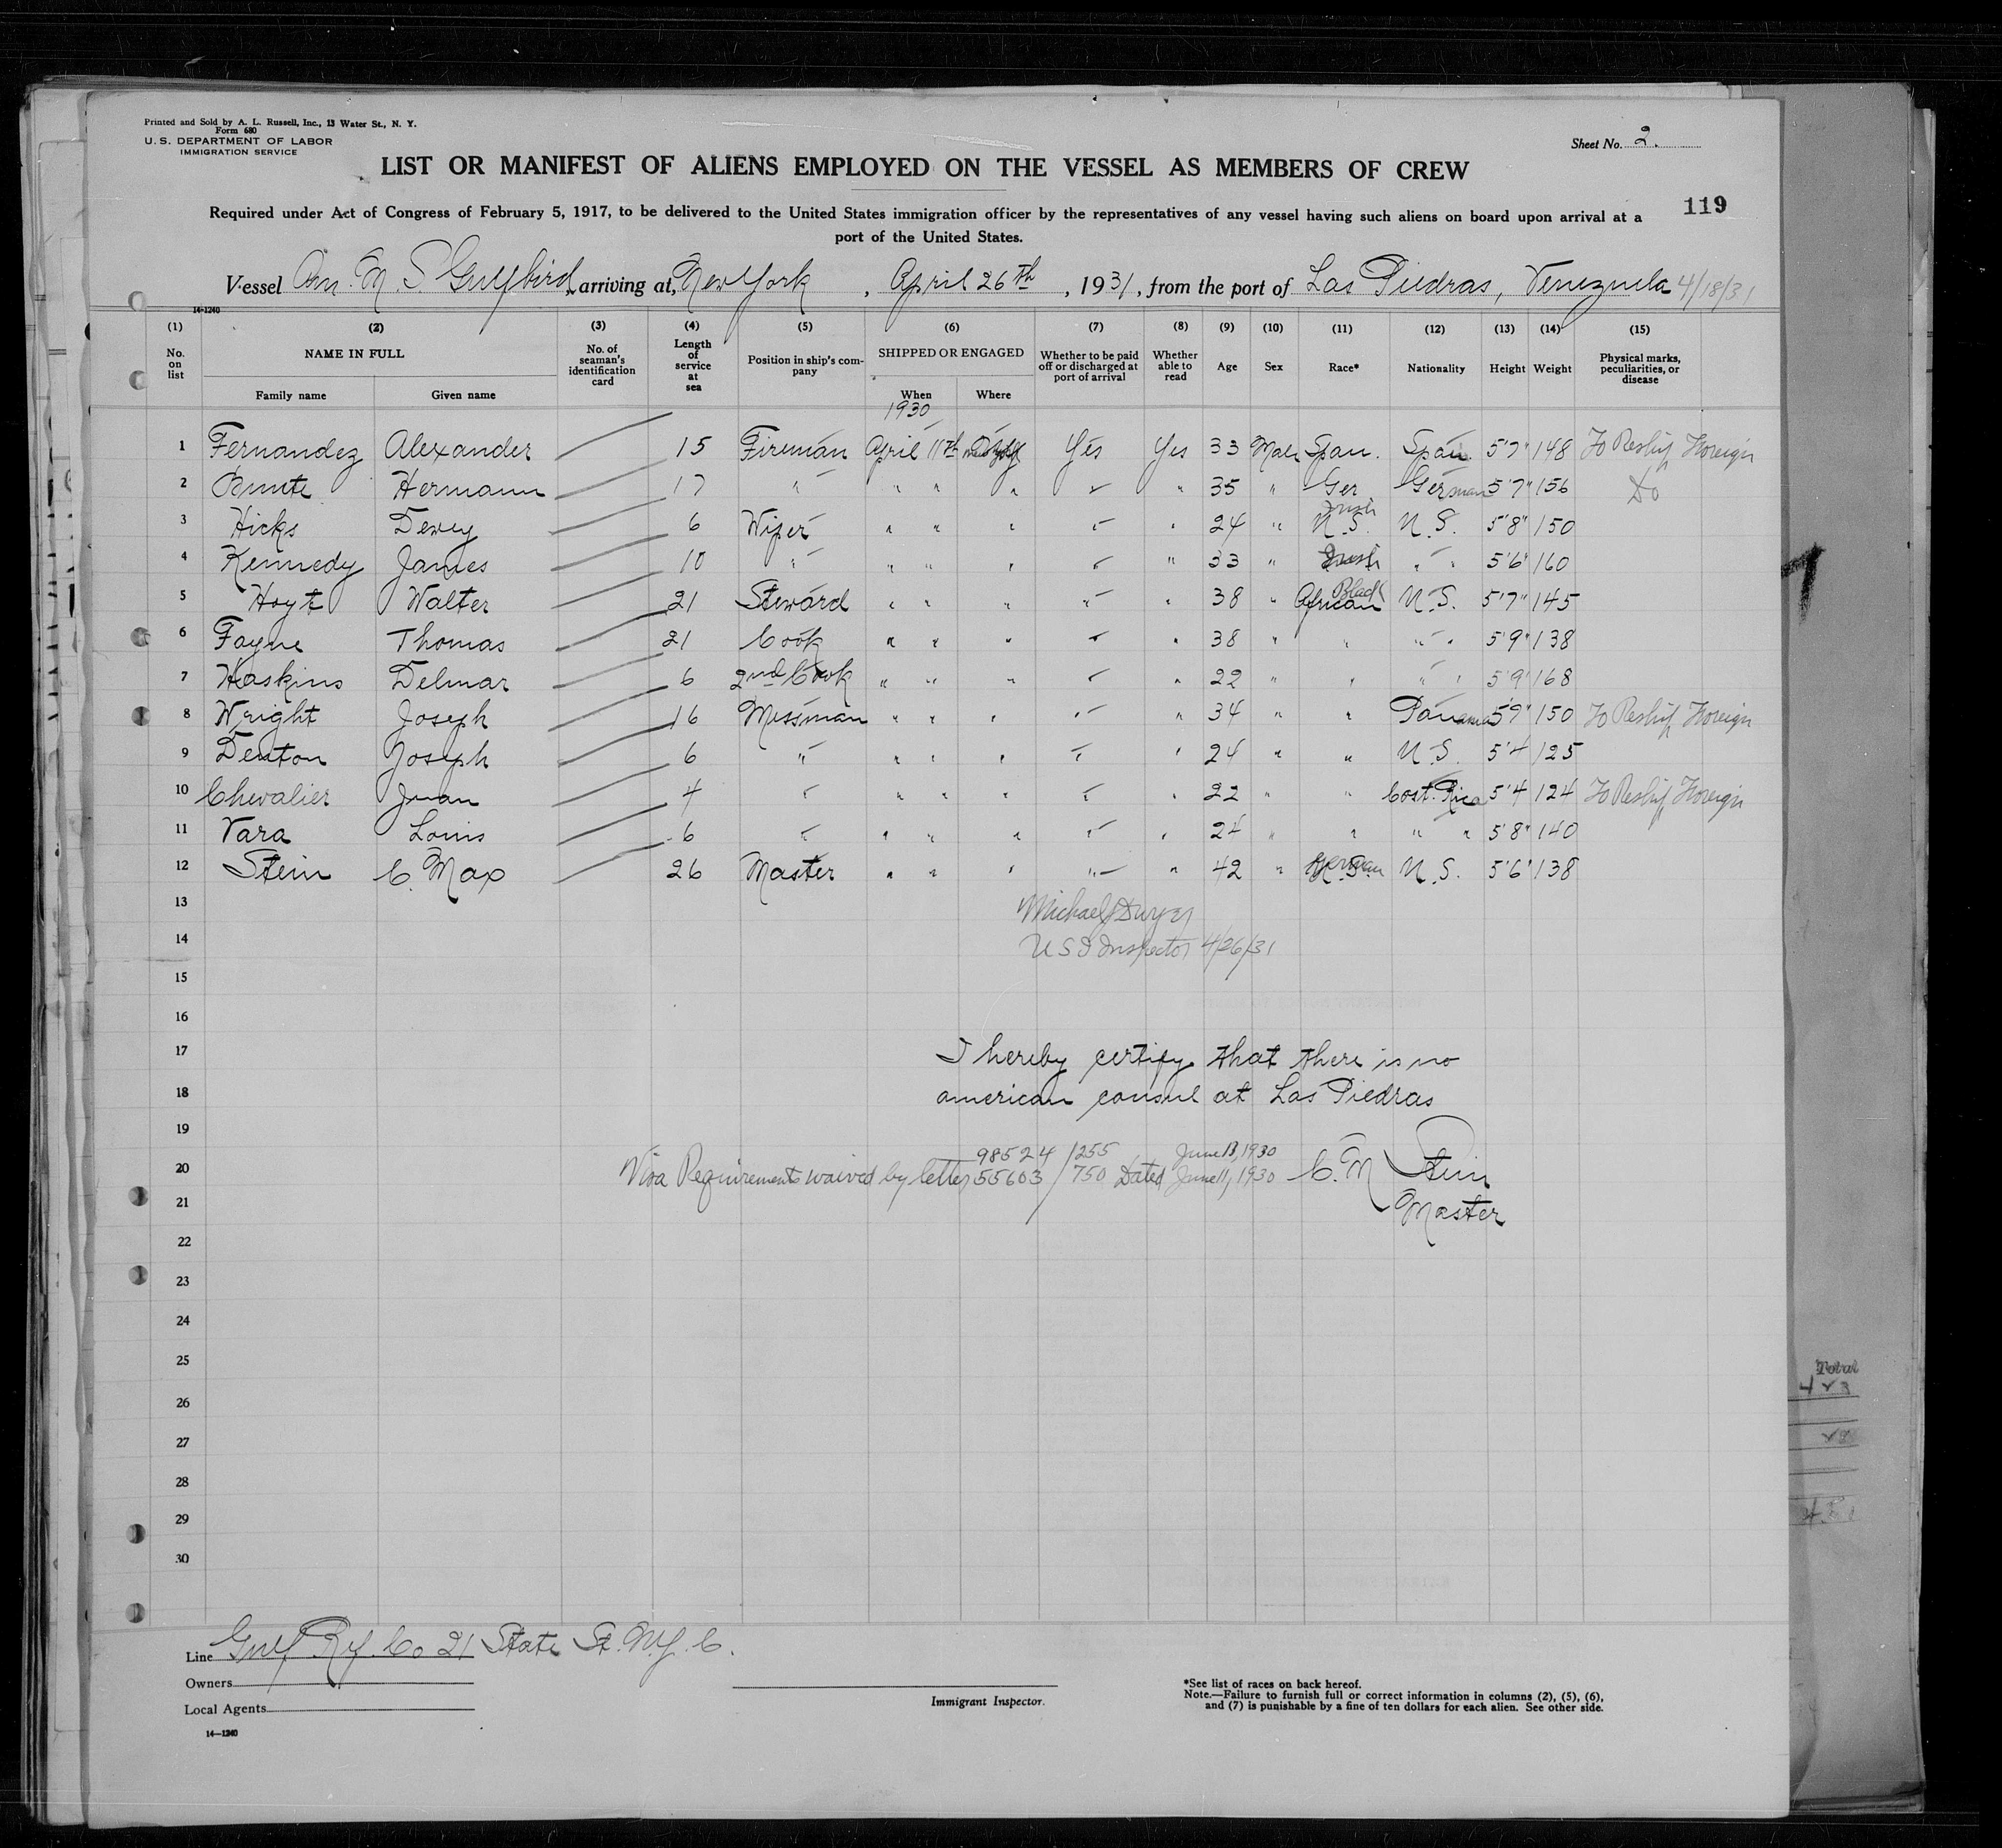 Printed and Sold by A. L. Russell, Inc., 13 Water St., N. Y.
Form 680
U. S. DEPARTMENT OF LABOR
IMMIGRATION SERVICE
Sheet No. 2.
LIST OR MANIFEST OF ALIENS EMPLOYED ON THE VESSEL AS MEMBERS OF CREW
119
Required under Act of Congress of February 5, 1917, to be delivered to the United States immigration officer by the representatives of any vessel having such aliens on board upon arrival at a
port of the United States.
Vessel Am. M. S. Gulfbird, arriving at, New York, April 26th, 1931, from the port of Las Piedras, Venezuela 4/18/31
14-1240
(1) (2) (3) (4) (5) (6) (7) (8) (9) (10) (11) (12) (13) (14) (15)
No. on list NAME IN FULL No. of seaman's identification card Length of service at sea Position in ship's company SHIPPED OR ENGAGED Whether to be paid off or discharged at port of arrival Whether able to read Age Sex Race* Nationality Height Weight Physical marks, peculiarities, or disease
Family name Given name When Where
1930
1 Fernandez Alexander 15 Fireman April 11th Yes Yes 33 Male Span. Span. 5'7" 148 To Reship Foreign
2 Hermann 17 " " " " " 35 " Ger German 5'7" 156 Do
Irish
3 Hicks Dewey 6 Wiper " " " " 24 " U.S. U.S. 5'8" 150
4 Kennedy James 10 " " " " " 33 " Irish " " 5'6" 160
5 Hoyt Walter 21 Steward " " " " " 38 " African Black U.S. 5'7" 145
6 Fayne Thomas 21 Cook " " " " 38 " " " " 5'9" 138
7 Haskins Delmar 6 2nd Cook " " " " 22 " " " " 5'9" 168
8 Wright Joseph 16 Messman " " " " " 34 " " Panama 5'9" 150 To Reship Foreign
9 Denton Joseph 6 " " " " " " 24 " " U.S. 5'4 125
10 Chevalier Juan 4 " " " " " " 22 " " Cost. Rica 5'4 124 To Reship Foreign
11 Vara Louis 6 " " " " " " 24 " " " " 5'8" 140
12 Stein C. Max 26 Master " " " " " 42 " German U.S. 5'6" 138
13 Michael J Dwyer
14 U S I Inspector 4/26/31
15
16
17 I hereby certify that there is no
18 american consul at Las Piedras
19
98524/255 June 13, 1930
20 Visa Requirements waived by letter 55603/750 Dated June 11, 1930 C. M Stein
21 Master
22
23
24
25
26
27
28
29
30
Total
Line Gulf Rf. Co 21 State St. N.Y.C.
Owners
Local Agents
14-1240
Immigrant Inspector.
*See list of races on back hereof.
Note.—Failure to furnish full or correct information in columns (2), (5), (6),
and (7) is punishable by a fine of ten dollars for each alien. See other side.